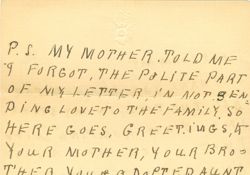 P.S. MY MOTHER. TOLD ME
I FORGOT, THE POLITE PART
OF MY LETTER, I'N NOT SEN
DING LOVE TO THE FAMILY, SO
HERE GOES, GREETINGS, &
YOUR MOTHER, YOUR BROS
THER YOUR ADOPTED AUNT